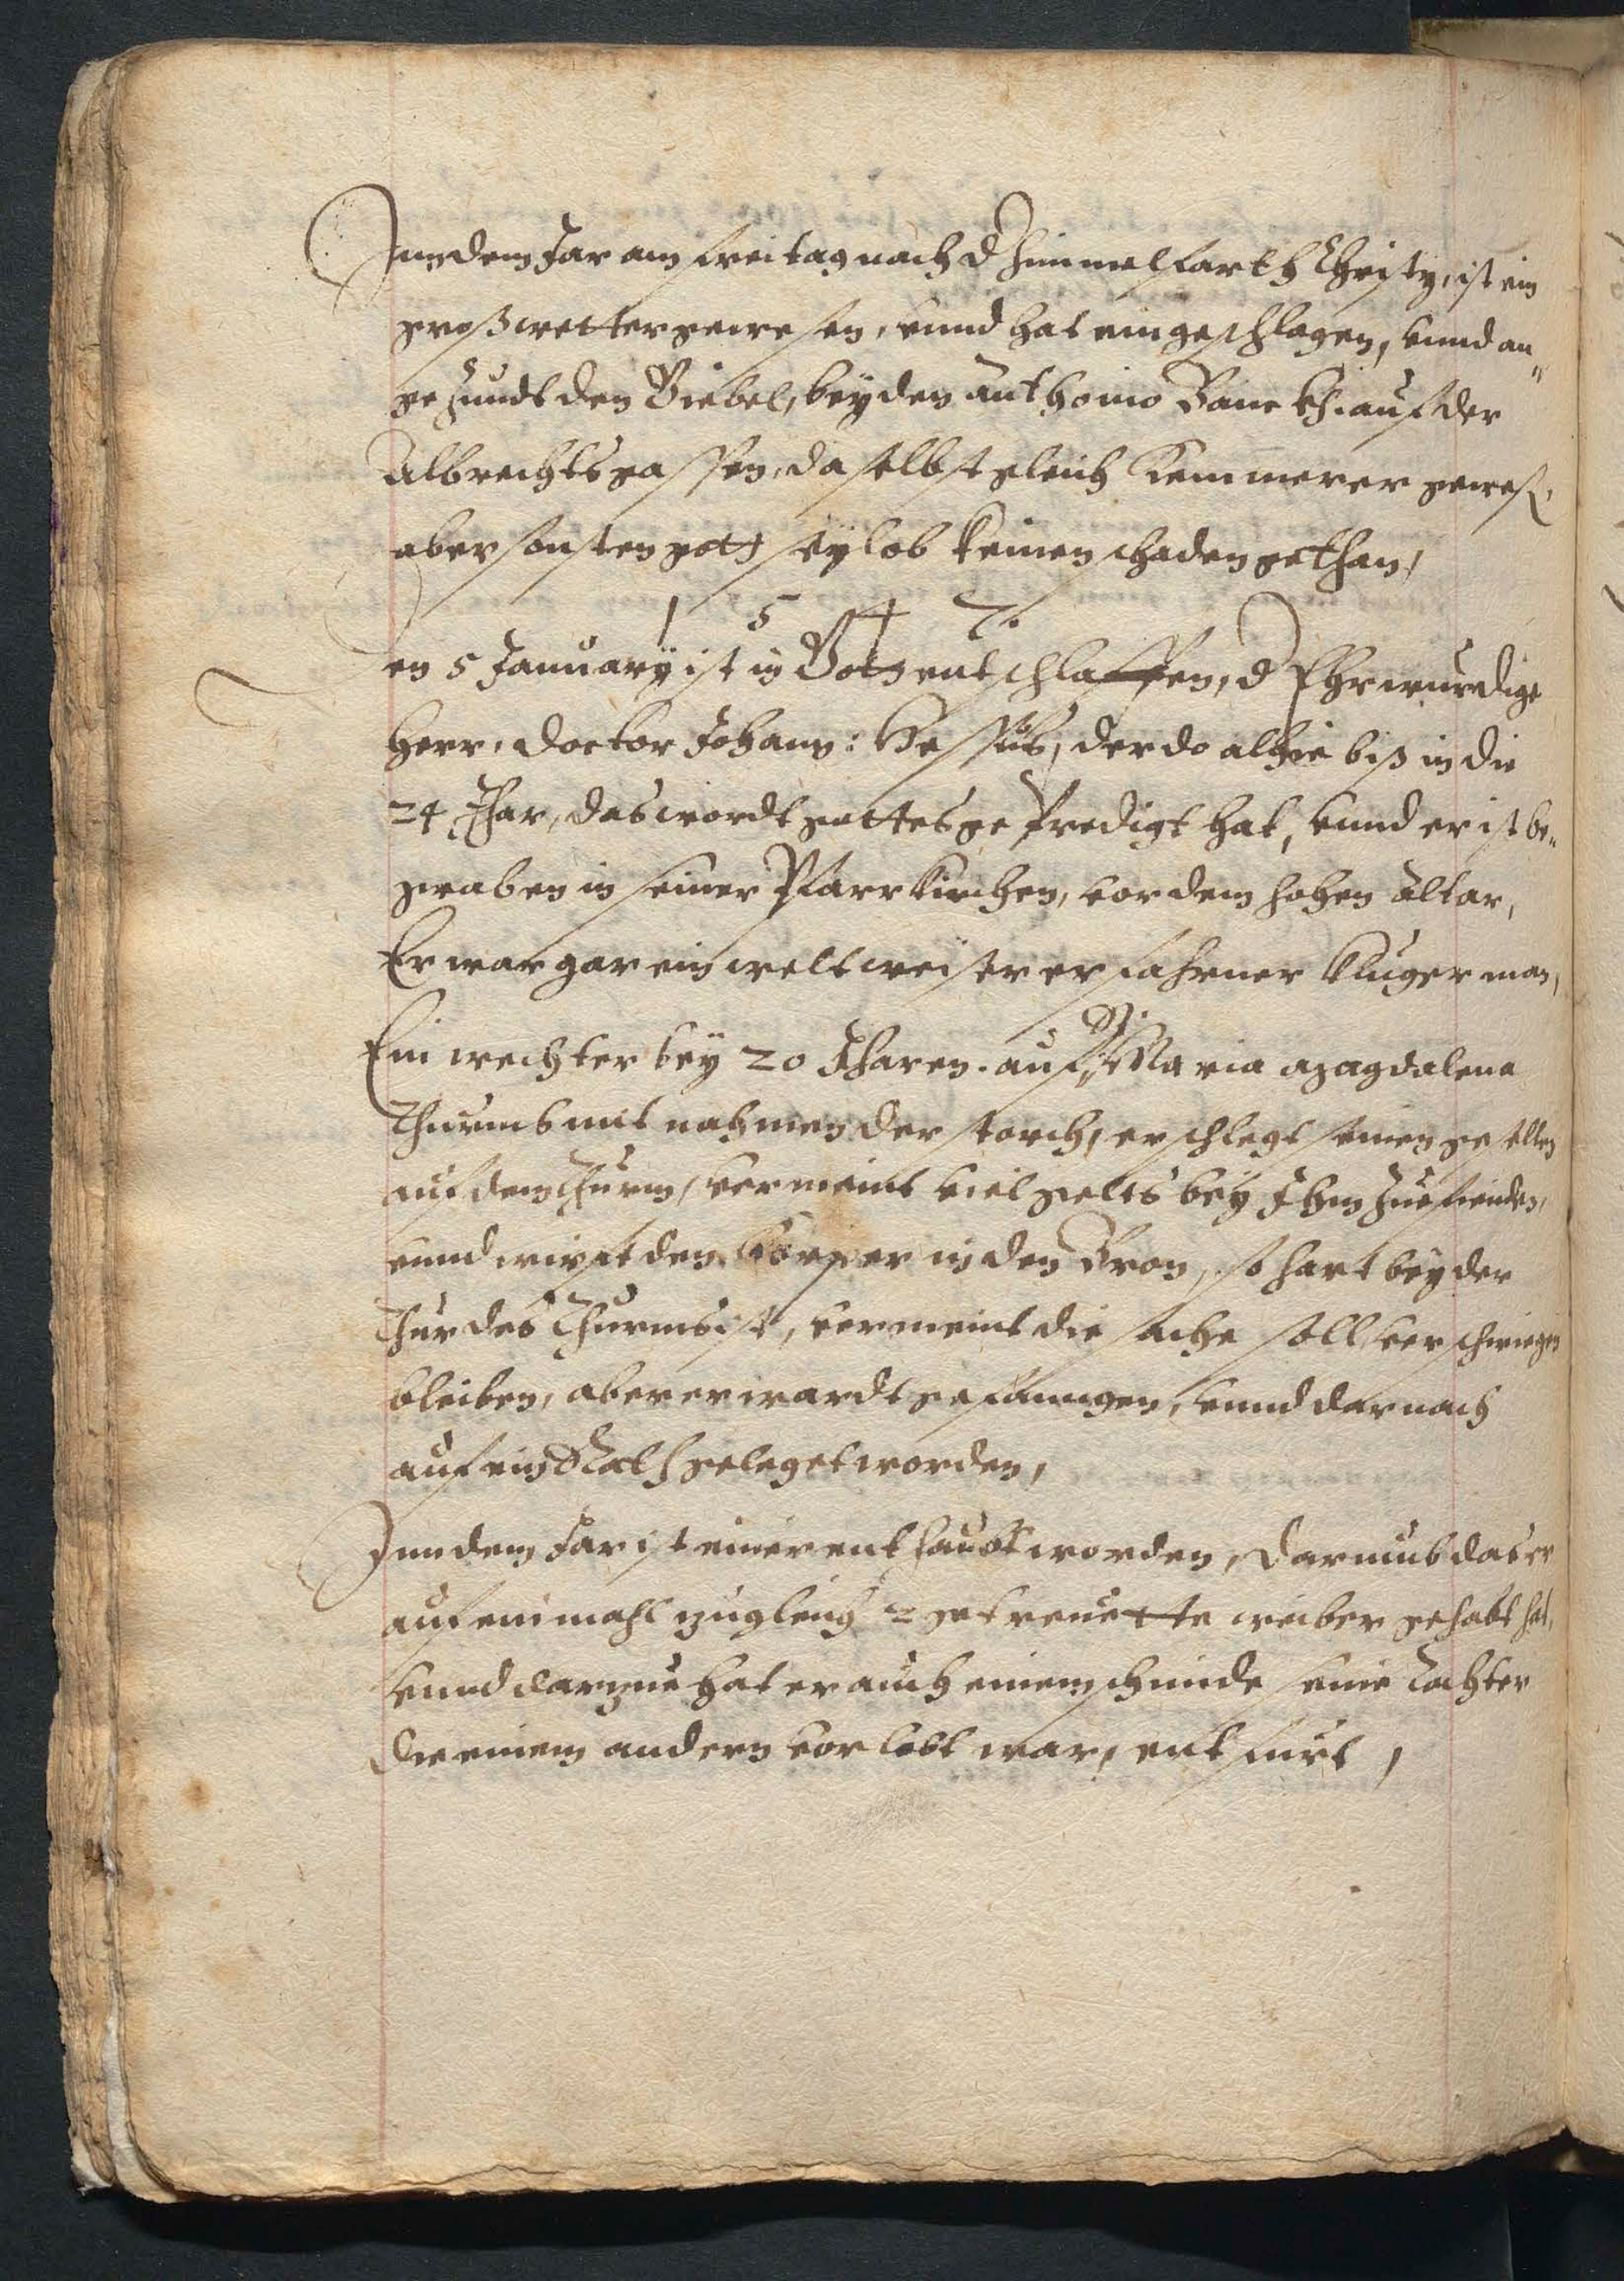 Inn dem Jar am freitag nach d Himmelfarth Christy, ist ein
groß wetter gewesen, vnnd hat eingeschlagen, vnnd an„
gezundt den Giebel, bey den Anthonio Banckh. auf der
Albrechtsgassen, daselbst gleich Kemmerer geweß,
aber sonsten gott seÿ lob keinen schaden gethan,
1 5 4 7.
Den 5 Januarÿ ist in Gott entschlaffen, d Ehrwurdige
herr, doctor Johann: Hessus, der do alhie biß in die
24 Jhar, das wordt gottes geprediget hat, vnnd er ist be„
graben in seiner Pfarrkirchen, vor dem hohen Altar,
Er war gar ein weltweiser erfahrner kluger man,
Ein wechter beÿ 20 Jharen. auf S. Maria Magdalena
Thurmb mit nahmen der storch, erschlegt seinen gesellen
auf dem thurm, vermeint viel gelts beÿ Ihm zue finden,
vnnd wirfft den Körper in den Bron, so hart beÿ der
Thur des Thurms ist, vermeint die sache soll verschwiegen
bleiben, aber er wardt gefanngen, vnnd darnach
auf ein Rath geleget worden,
Inn dem Jar ist einer enthaubt worden, darumb das er
auf ein mahl zugleich 2 getreuette weiber gehabt hat,
vnnd darzue hat er auch einem schmide seine Tochter
die einem andern vorlobt war, entfürt,